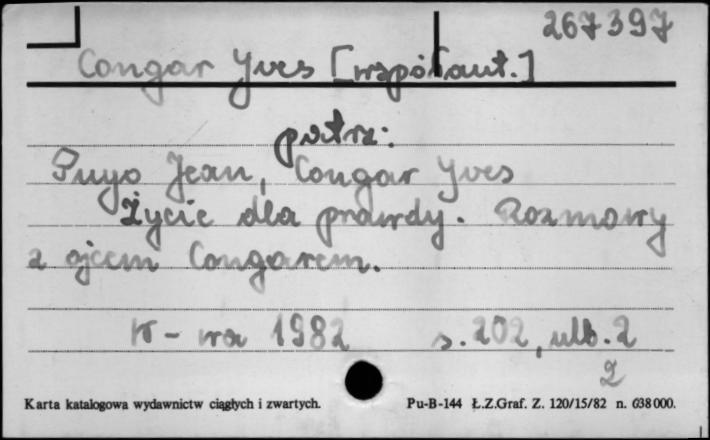 267397
Congar Yves [współaut.]
patrz:
Puyo Jean, Congar Yves
Życie dla prawdy. Rozmowy
z ojcem Congarem.
W-wa 1982 s. 202, ulb. 2
2
Karta katalogowa wydawnictw ciągłych i zwartych. Pu-B-144 Ł.Z.Graf. Z. 120/15/82 n. 638000.